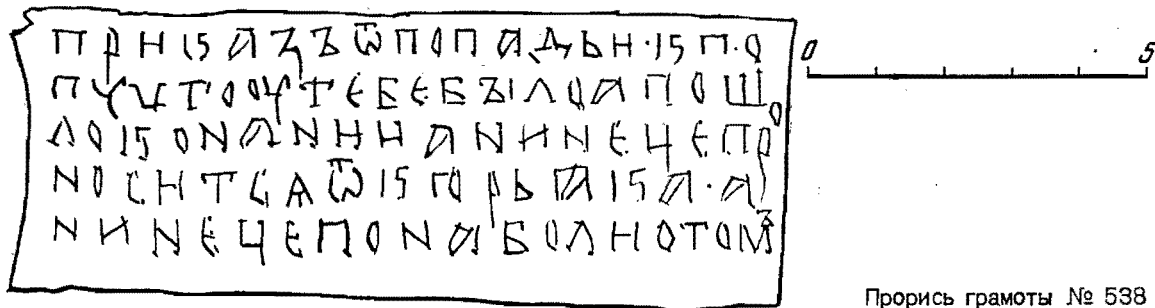 ПРИКАЗЪѾПОПАДЬИ·КП·О
ПУЦТООУТЕБЕБЪІЛОАПОШО
ЛОКОNАNИИАNИNЕЦЕПРО
NОСИТСѦѾКЮРЬꙖКА·А
NИNЕЦЕПОNАБОЛИОТОМЪ
0 5
Прорись грамоты № 538